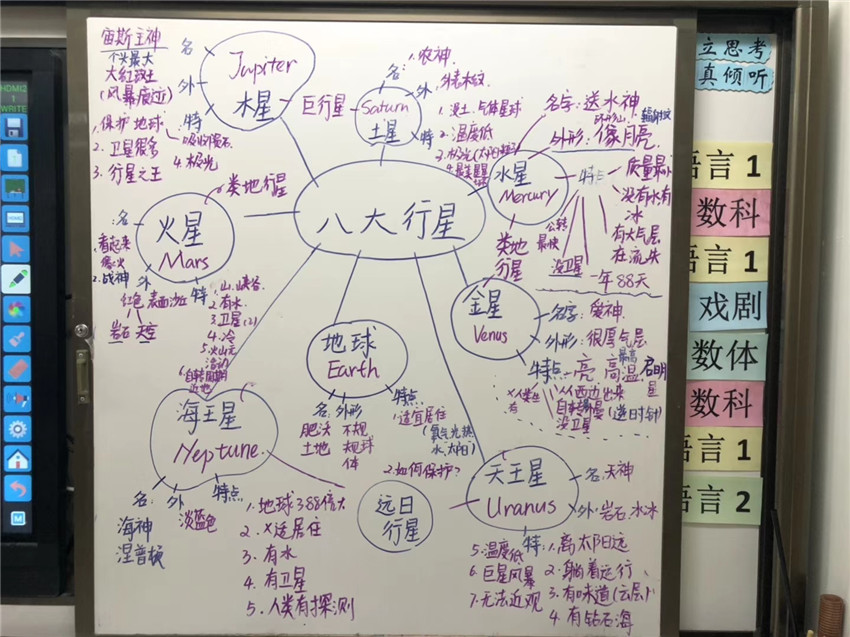 宙斯主神
名
个头最大
大红斑
外
(风暴痕迹)
Jupiter
木星
特
1.保护地球
吸收陨石
2.卫星很多
4.极光
3.行星之王
巨行星
农神
名:
外
Saturn
土星
特
1.没土.气体星球
2.温度低
名字:送水神
外形:像月亮
环形山
水星
Mercury
特点
质量最小
没有水有
冰
有大气层
在流失
公转
最快
没卫星
一年88天
类地
行星
八大行星
类地行星
火星
Mars
:名
1.看起来
像火
2.战神
外
红色 表面
岩石 天空
特
1.山.峡谷
2.有水.
3.卫星(2)
4.冷
5.火山
活动
6.自转周期
近地
地球
Earth
名:
肥沃
土地
外形
不规
规球
体
特点
1.适宜居住
水.太阳)
2.如何保护?
金星
Venus
名字:爱神
外形:很厚气层
特点
亮
最高
高温
启明
星
从西边出来
(逆时针)
没卫星
海王星
Neptune
名:
海神
涅普顿
外
淡蓝色
特点
1.地球3.88倍大
2.X适居住
3.有水
4.有卫星
5.人类有探测
远日
行星
天王星
Uranus
名:天神
外:岩石.水冰
特:
1.离太阳远
2.躺着运行
3.有味道(云层)
4.有钻石海
5.温度低
6.巨星风暴
7.无法近观
HDMI2
1
WRITE
立思考
真倾听
语言1
数科
语言1
戏剧
数体
数科
语言1
语言2